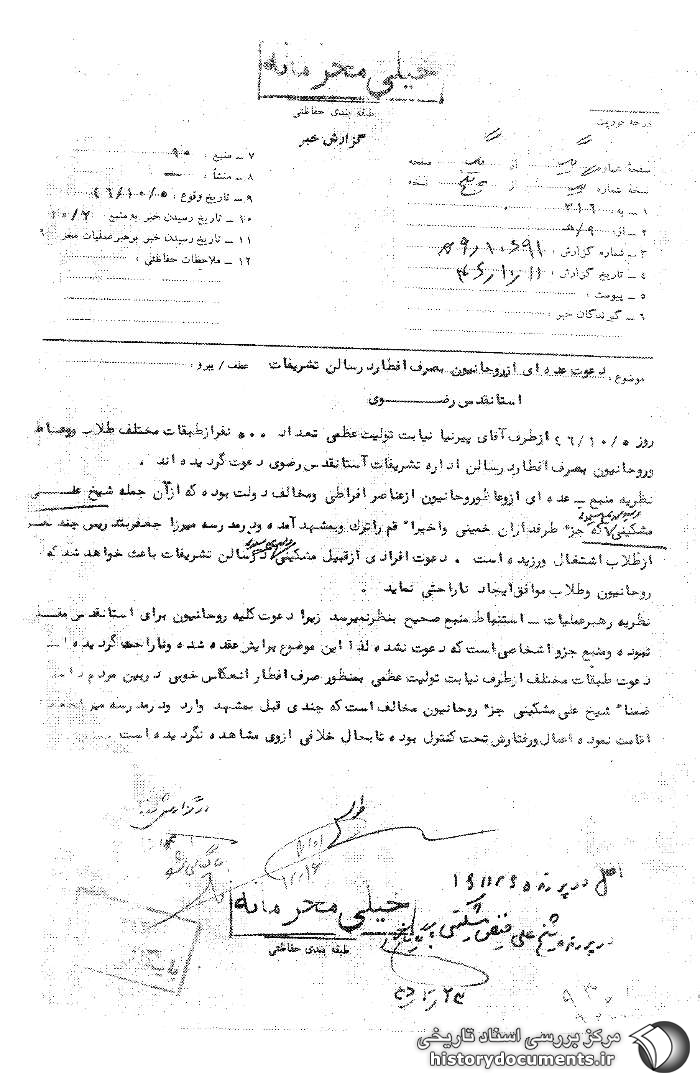 خیلی محرمانه
طبقه بندی حفاظتی
گزارش خبر
درجه فوریت
صفحه شماره یک از یک صفحه
نسخه شماره از پنج نسخه
۱ – به ۳۱۶
۲ – از ۹/ه‍
۳ – شماره گزارش
۴ – تاریخ گزارش
۵ – پیوست :
۶ – گیرندگان خبر :
۷ – منبع : ۹۰
۸ – منشأ :
۹ – تاریخ وقوع : ۴۶/۱۰/۵
۱۰ – تاریخ رسیدن خبر به منبع
۱۱ – تاریخ رسیدن خبر برهبر عملیات
۱۲ – ملاحظات حفاظتی :
موضوع : دعوت عده ای ازروحانیون بصرف افطار درسالن تشریفات عطف / پیرو :
آستانقدس رضوی
روز ۴۶/۱۰/۵ ازطرف آقای پیرنیا نیابت تولیت عظمی تعداد ۵۰۰ نفرازطبقات مختلف طلاب ووعاظ
وروحانیون بصرف افطار درسالن اداره تشریفات آستانقدس رضوی دعوت گردیده اند .
نظریه منبع – عده ای ازوعاظ وروحانیون ازعناصر افراطی ومخالف دولت بوده که ازآن جمله شیخ علی
مشکینی که جزء طرفداران خمینی واخیرا" قم راترک وبمشهد آمده ودرمدرسه میرزا جعفر بتدریس چند
ازطلاب اشتغال ورزیده است . دعوت افرادی ازقبیل مشکینی درسالن تشریفات باعث خواهد شد که
روحانیون وطلاب موافق ایجاد ناراحتی نماید .
نظریه رهبرعملیات – استنباط منبع صحیح بنظرنمیرسد زیرا دعوت کلیه روحانیون برای آستانقدس
نموده ومنبع جزو اشخاصی است که دعوت نشده لذا این موضوع برایش عقده شده وناراحت گردیده
دعوت طبقات مختلف ازطرف نیابت تولیت عظمی بمنظور صرف افطار انعکاس خوبی دربین مردم
ضمنا" شیخ علی مشکینی جزء روحانیون مخالف است که چندی قبل بمشهد وارد ودرمدرسه
اقامت نموده اعمال ورفتارش تحت کنترل بوده تابحال خلافی ازوی مشاهده نگردیده است .
اصل در پرونده
در پرونده شیخ علی فیض مشکینی
خیلی محرمانه
طبقه بندی حفاظتی
مرکز بررسی اسناد تاریخی
historydocuments.ir